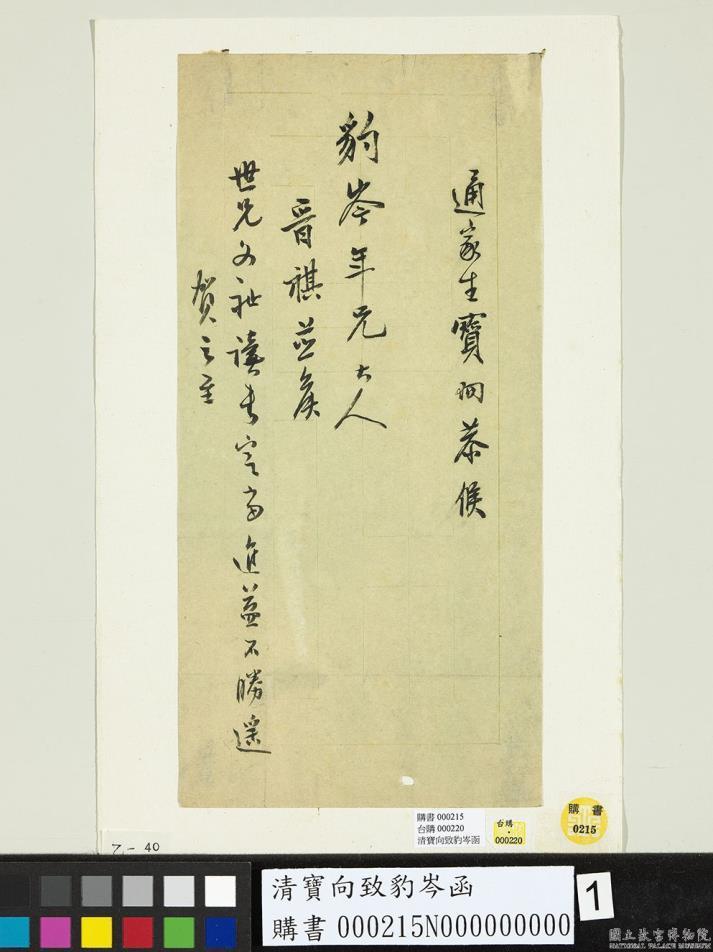 通家生寶珣恭候
豹岑年兄大人
晉祺並候
世兄文祉讀書定當進益不勝遙
賀之至
購書 000215
台購 000220
清寶向致豹岑函
台購
000220
購書
0215
乙-40
清寶向致豹岑函
購書 000215N000000000
1
國立故宮博物院
NATIONAL PALACE MUSEUM